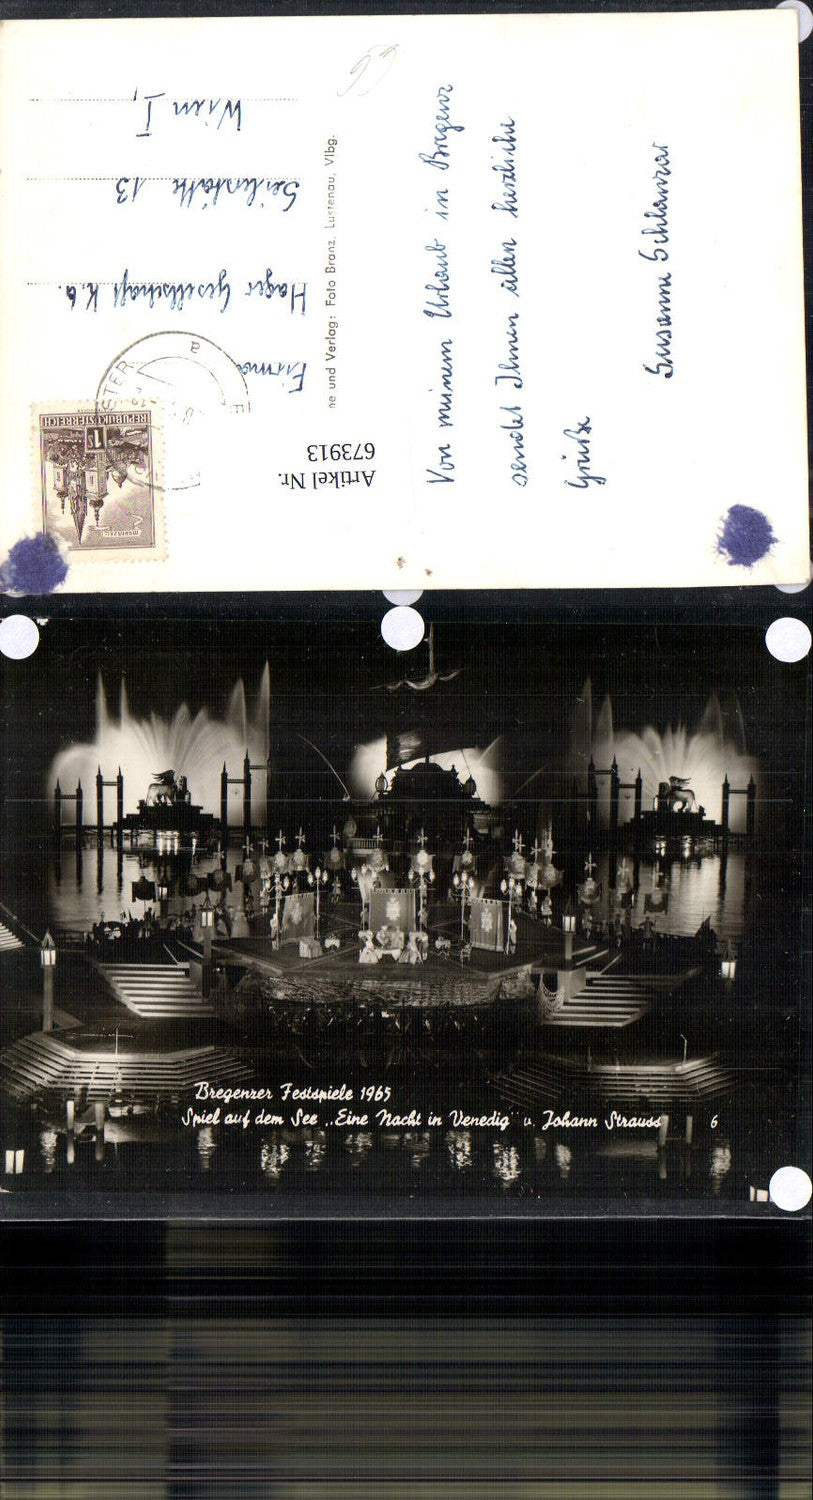 Von meinem Urlaub in Bregenz
sendet Ihnen allen herzliche
Grüße
Susanne Schlanzar
65
Firma
Hager Gesellschaft K.G.
Seilerstätte 13
Wien I,
ne und Verlag: Foto Branz, Lustenau, Vlbg.
Artikel Nr.
673913
REPUBLIK ÖSTERREICH
S1
MARIAZELL
STER
a
Bregenzer Festspiele 1965
Spiel auf dem See „Eine Nacht in Venedig" v. Johann Strauss 6